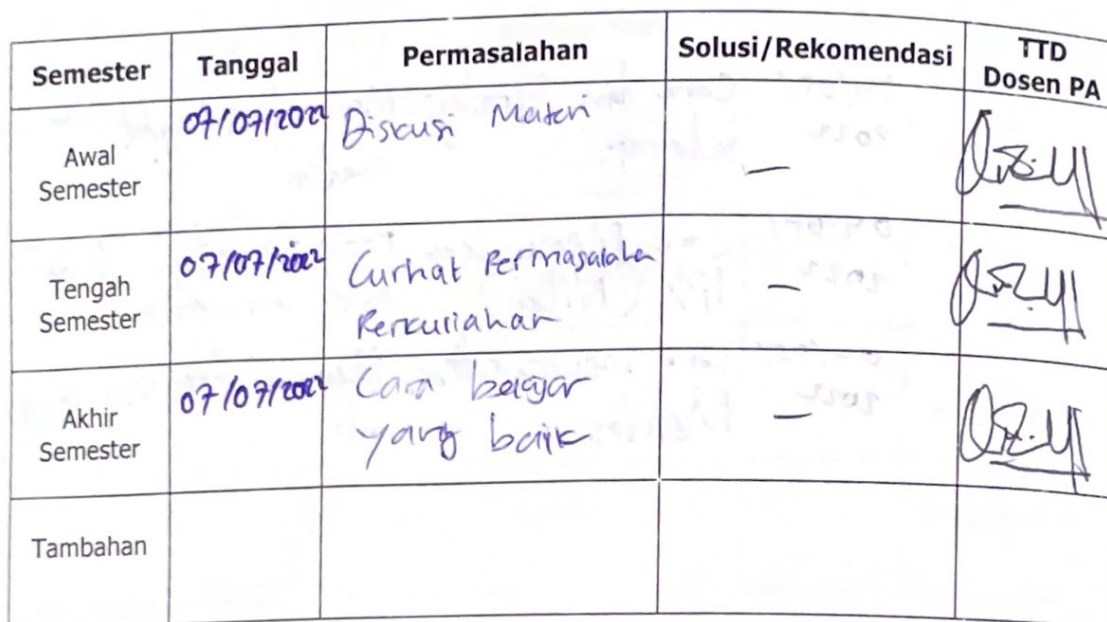 Semester Tanggal Permasalahan Solusi/Rekomendasi TTD
Dosen PA
Awal
Semester
07/07/2022 Diskusi Materi —
Tengah
Semester
07/07/2022 Curhat Permasalahan —
Perkuliahan
Akhir
Semester
07/07/2022 Cara belajar —
yang baik
Tambahan